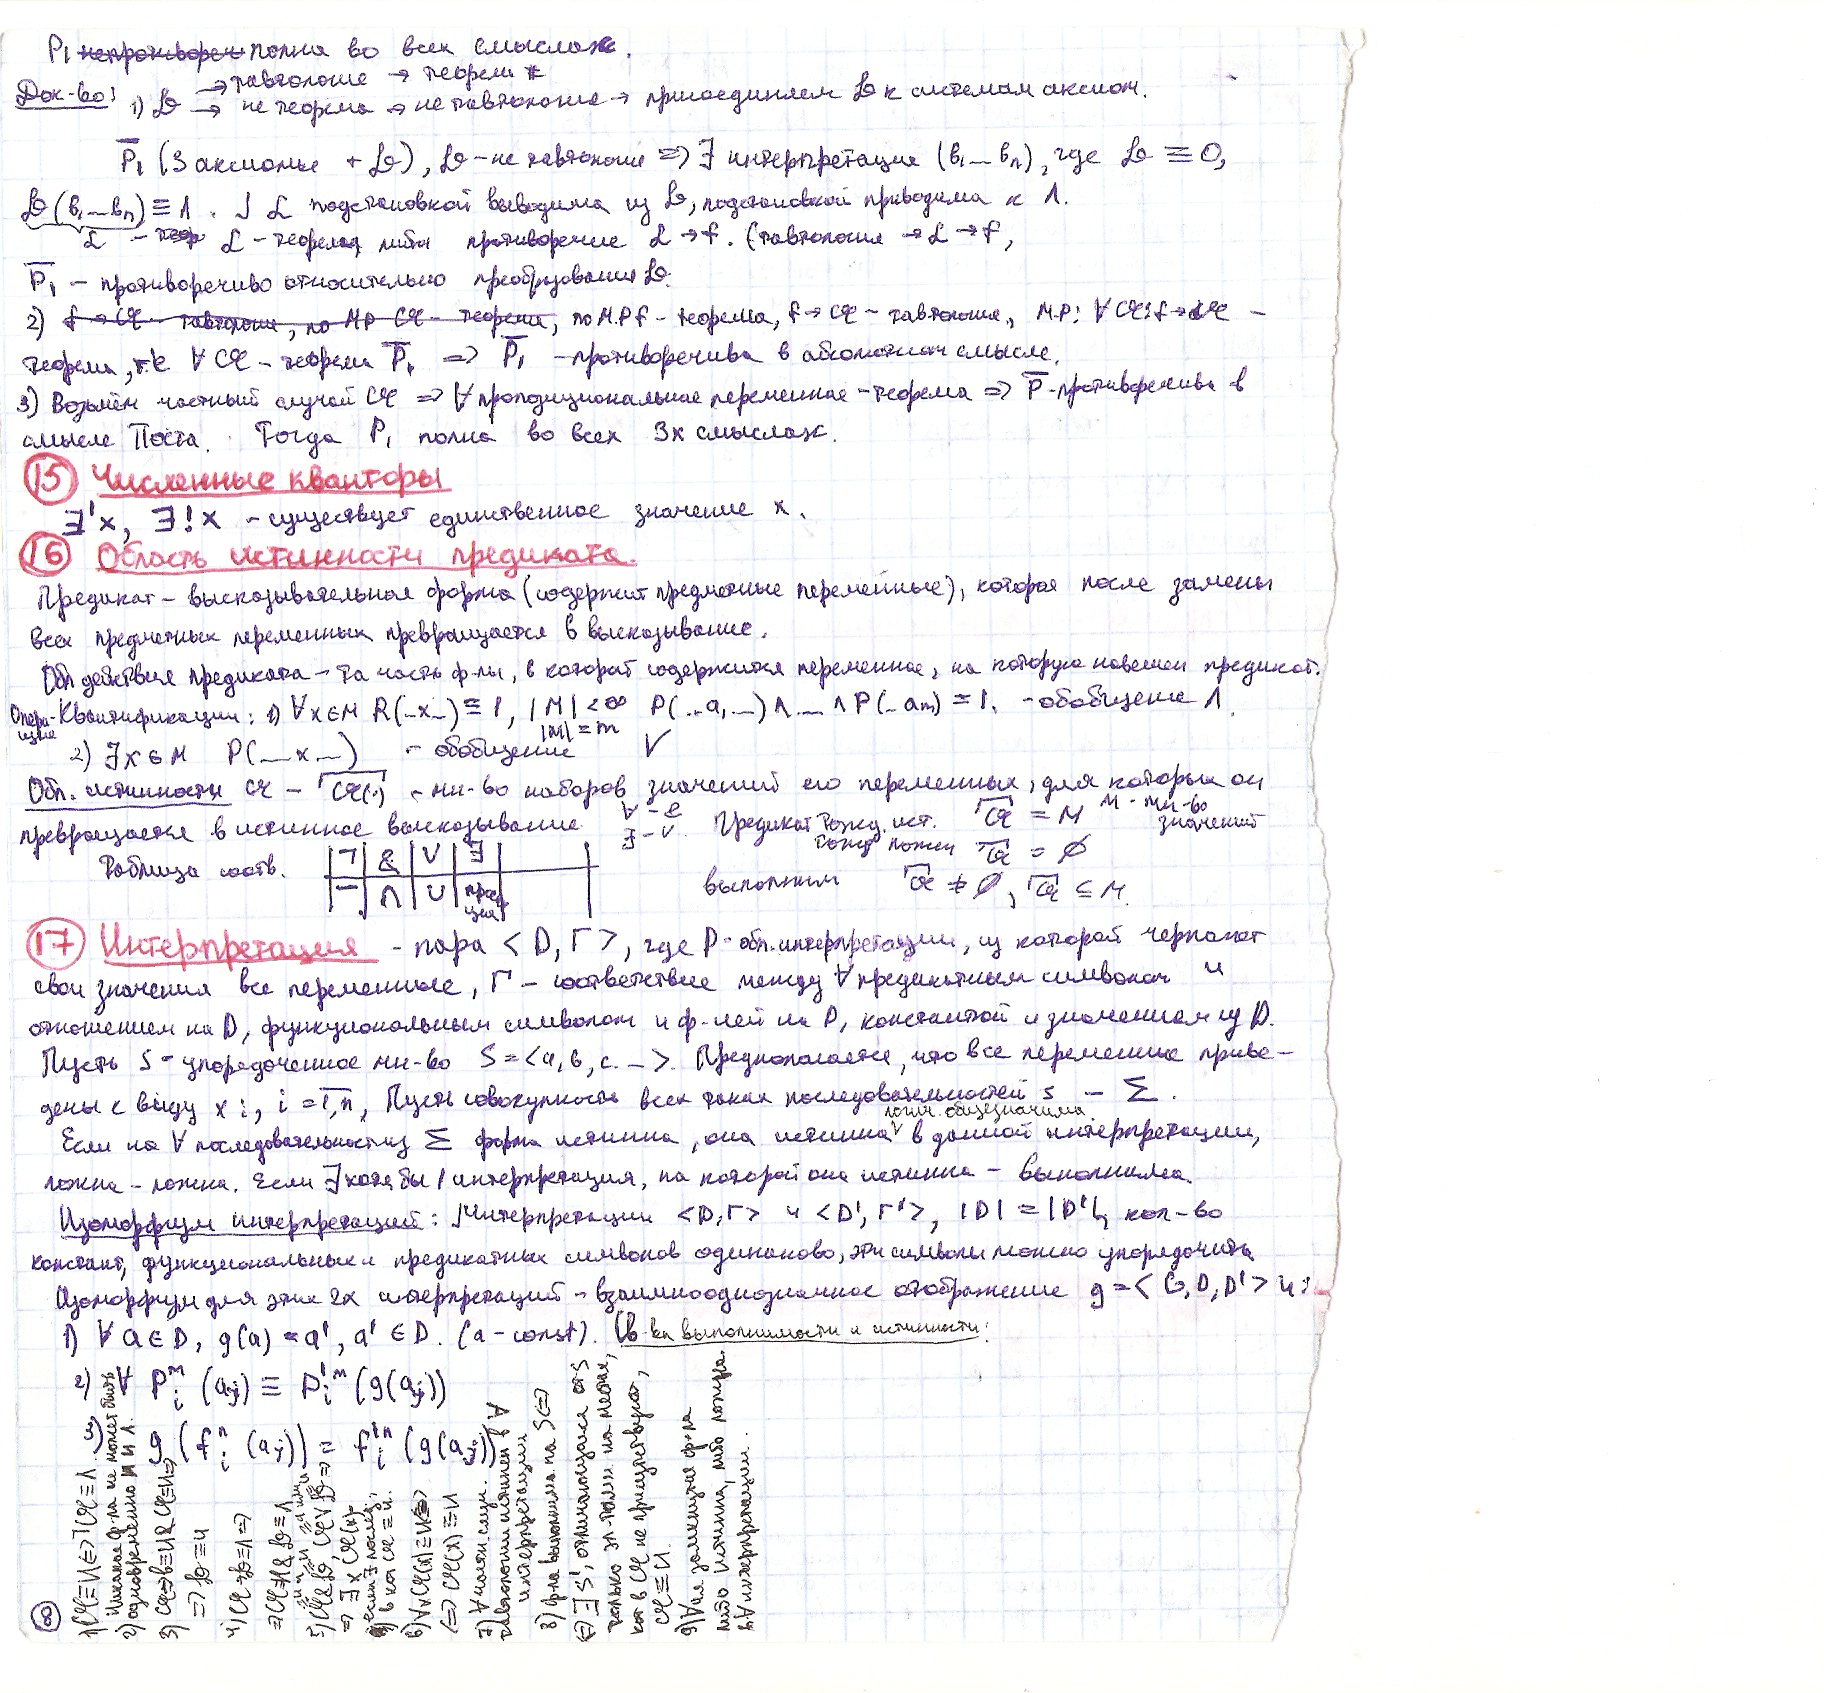 P₁ ~~непротивореч~~ полна во всех смыслах.
→ тавтология → теорема
Док-во: 1) ℒ → не теорема → не тавтология → присоединяем ℒ к системам аксиом.
P̅₁ (3 аксиомы + ℒ), ℒ - не тавтология => ∃ интерпретация (в₁ ... вₙ), где ℒ ≡ 0,
ℒ(в₁...вₙ) ≡ Λ. ∫ L подстановкой выводима из ℒ, подстановкой приводима к Λ.
L - теорема, либо противоречие L → f. (тавтология → L → f,
P̅₁ - противоречиво относительно преобразования ℒ.
2) ~~f → 𝒜 - тавтология, по МР 𝒜 - теорема~~, по М.Р f - теорема, f → 𝒜 - тавтология, М.Р: ∀𝒜: f → 𝒜 -
теорема, т.е. ∀𝒜 - теорема P̅₁ => P̅₁ - противоречива в абсолютном смысле.
3) Возьмём частный случай 𝒜 => ∀ пропозициональная переменная - теорема => P̅ - противоречива в
смысле Поста. Тогда P₁ полна во всех 3х смыслах.
15 Численные кванторы
∃'x, ∃!x - существует единственное значение x.
16 Область истинности предиката.
Предикат - высказывательная форма (содержит предметные переменные), которая после замены
всех предметных переменных превращается в высказывание.
Обл действия предиката - та часть ф-лы, в которой содержится переменная, на которую навешен предикат.
Операция Квантификации: 1) ∀x∈M R(...x...) ≡ 1, |M| < ∞ P(...a₁...) ∧ ... ∧ P(...aₘ) = 1. - обобщение ∧.
|M| = m
2) ∃x∈M P(...x...) - обобщение ∨
Обл. истинности 𝒜 - 𝒜(·) - мн-во наборов значений его переменных, для которых он
превращается в истинное высказывание. ∀ - & Предикат тожд. ист. 𝒜 = M M - мн-во значений
∃ - ∨ тожд ложен 𝒜 = ∅
Таблица соотв. ¬ & ∨ ∃
‾ ∩ ∪ проекция
выполним 𝒜 ≠ ∅, 𝒜 ⊆ M.
17 Интерпретация - пара <D, Г>, где D - обл. интерпретации, из которой черпают
свои значения все переменные, Г - соответствие между ∀ предикатным символом и
отношением на D, функциональным символом и ф-ией на D, константой и значением из D.
Пусть S - упорядоченное мн-во S = <a, в, c ...>. Предполагается, что все переменные приве-
дены к виду xᵢ, i = 1,n, Пусть совокупность всех таких последовательностей S - Σ.
логич. общезначима
Если на ∀ последовательности из Σ форма истинна, она истинна в данной интерпретации,
ложна - ложна. Если ∃ хотя бы 1 интерпретация, на которой она истинна - выполнима.
Изоморфизм интерпретаций: ∫ интерпретации <D, Г> и <D', Г'>, |D| = |D'|, кол-во
констант, функциональных и предикатных символов одинаково, эти символы можно упорядочить
Изоморфизм для этих 2х интерпретаций - взаимнооднозначное отображение g = <G, D, D'> и:
1) ∀a∈D, g(a) = a', a'∈D. (a - const). Св-ва выполнимости и истинности:
2) ∀ Pᵢᵐ (aⱼ) ≡ P'ᵢᵐ (g(aⱼ))
3) g (fᵢⁿ (aⱼ)) = f'ᵢⁿ (g(aⱼ))
∞
1) 𝒜 ≡ И <=> ¬𝒜 ≡ Λ.
2) Никакая ф-ла не может быть
одновременно И и Л.
3) 𝒜 → ℒ ≡ И & 𝒜 ≡ И =>
=> ℒ ≡ И
4) 𝒜 → ℒ ≡ Λ =>
=> 𝒜 ≡ И & ℒ ≡ Λ
5) 𝒜 & ℒ, 𝒜 ∨ ℒ =>
=> ∃x 𝒜(x)
если ∃ послед,
в кот 𝒜 ≡ И.
6) ∀x 𝒜(x) ≡ И <=>
<=> 𝒜(x) ≡ И
7) ∀ частн. случ.
тавтологии истинен в ∀
интерпретации
8) ф-ла выполнима на S <=>
<=> ∃ S', отличающаяся от S
только эл-тами на местах,
кот в 𝒜 не присутствуют,
𝒜 ≡ И.
9) ∀ замкнутая ф-ла
либо истинна, либо ложна
в ∀ интерпретации.